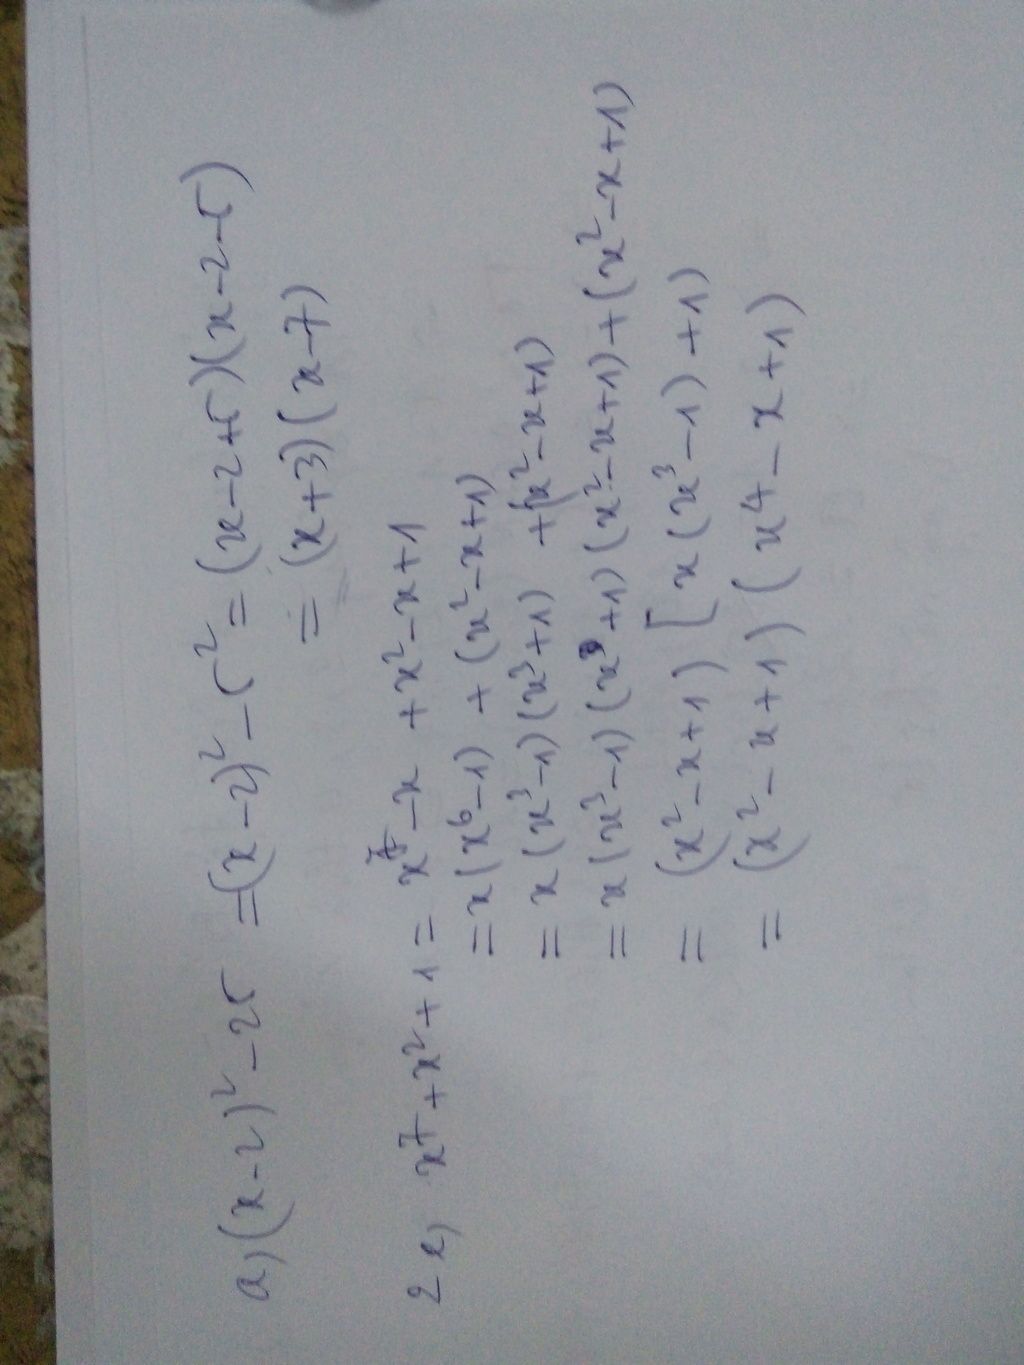 a, (x-2)² - 25 = (x-2)² - 5² = (x-2+5)(x-2-5)
= (x+3)(x-7)
2e, x⁷+x²+1 = x⁷-x +x²-x+1
= x(x⁶-1) + (x²-x+1)
= x(x³-1)(x³+1) + (x²-x+1)
= x(x³-1)(x³+1)(x²-x+1) + (x²-x+1)
= (x²-x+1) [x(x³-1)+1)
= (x²-x+1)(x⁴-x+1)